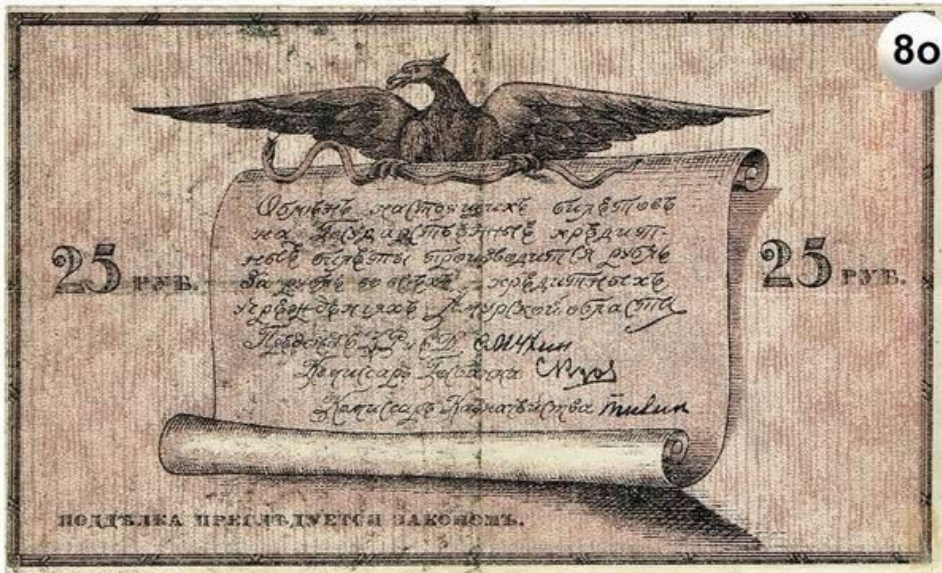 80
Обмѣнъ настоящихъ билетовъ
на Государственные кредит-
ные билеты производится рубль
За рубль во всѣхъ кредитныхъ
учрежденіяхъ Амурской области
25 РУБ.
25 РУБ.
Комиссаръ
Комиссаръ Казначейства
ПОДДѢЛКА ПРЕСЛѢДУЕТСЯ ЗАКОНОМЪ.